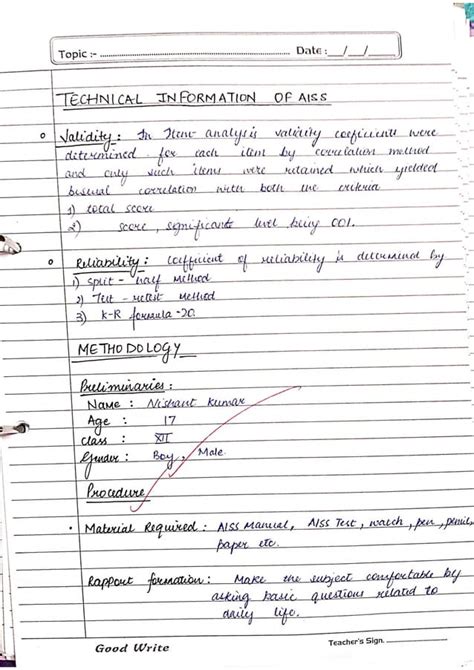 Topic :- Date :__/__/__
TECHNICAL INFORMATION OF AISS
Validity : In Item analysis validity coefficients were
determined for each item by correlation method
and only such items were retained which yielded
biserial correlation with both the criteria
1) total score
2) score, significants level being 001.
Reliability : coefficient of reliability is determined by
1) split - half method
2) Test - retest method
3) K-R formula -20.
METHODOLOGY
Preliminaries :
Name : Nishant Kumar
Age : 17
Class : XII
Gender : Boy, Male
Procedure
• Material Required : AISS Manual, AISS Test, watch, pen, pencil,
paper etc.
Rapport formation : Make the subject comfortable by
asking basic questions related to
daily life.
Good Write Teacher's Sign.